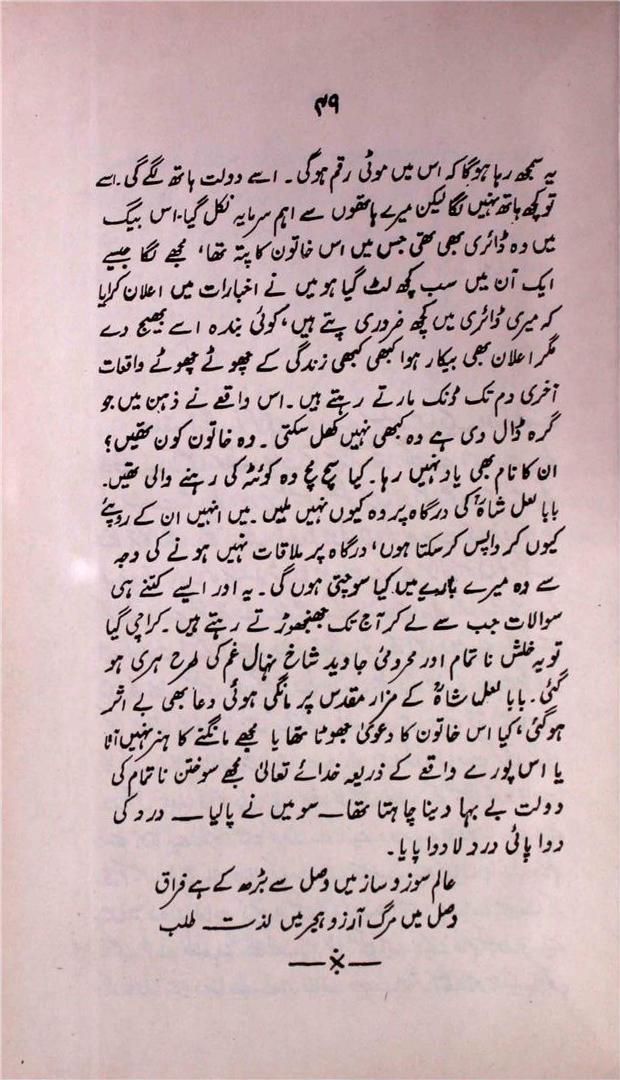 ۴۹
یہ سمجھ رہا ہوگا کہ اس میں موٹی رقم ہوگی ۔ اسے دولت ہاتھ لگے گی ۔ اسے
تو کچھ ہاتھ نہیں لگا لیکن میرے ہاتھوں سے اہم سرمایہ نکل گیا ۔ اس بیگ
میں وہ ڈائری بھی تھی جس میں اس خاتون کا پتہ تھا ، مجھے لگا جیسے
ایک آن میں سب کچھ لٹ گیا ہو میں نے اخبارات میں اعلان کرایا
کہ میری ڈائری میں کچھ ضروری پتے ہیں ، کوئی بندہ اسے بھیج دے
مگر اعلان بھی بیکار ہوا کبھی کبھی زندگی کے چھوٹے چھوٹے واقعات
آخری دم تک ڈنک مارتے رہتے ہیں ۔ اس واقعے نے ذہن میں جو
گرہ ڈال دی ہے وہ کبھی نہیں کھل سکتی ۔ وہ خاتون کون تھیں ؟
ان کا نام بھی یاد نہیں رہا ۔ کیا سچ مچ وہ کوئٹہ کی رہنے والی تھیں ۔
بابا لعل شاہؒ کی درگاہ پر وہ کیوں نہیں ملیں ۔ میں انہیں ان کے روپئے
کیوں کر واپس کر سکتا ہوں ، درگاہ پر ملاقات نہیں ہونے کی وجہ
سے وہ میرے بارے میں کیا سوچتی ہوں گی ۔ یہ اور ایسے کتنے ہی
سوالات جب سے لے کر آج تک جھنجھوڑتے رہتے ہیں ۔ کراچی گیا
تو یہ خلش ناتمام اور محرومیٔ جاوید شاخ نہال غم کی طرح ہری ہو
گئی ۔ بابا لعل شاہؒ کے مزار مقدس پر مانگی ہوئی دعا بھی بے اثر
ہوگئی ، کیا اس خاتون کا دعویٰ جھوٹا تھا یا مجھے مانگنے کا ہنر نہیں آتا
یا اس پورے واقعے کے ذریعہ خدائے تعالیٰ مجھے سوختن ناتمام کی
دولت بے بہا دینا چاہتا تھا ــ سو میں نے پالیا ــ درد کی
دوا پائی درد لا دوا پایا ۔
عالم سوز و ساز میں وصل سے بڑھ کے ہے فراق
وصل میں مرگ آرزو ہجر میں لذت طلب